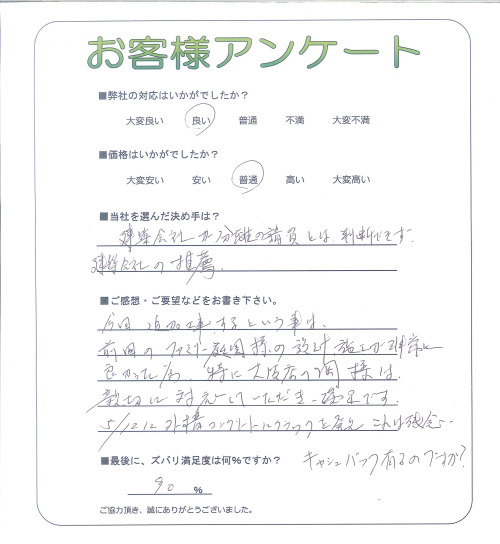 お客様アンケート
■弊社の対応はいかがでしたか？
大変良い 良い 普通 不満 大変不満
■価格はいかがでしたか？
大変安い 安い 普通 高い 大変高い
■当社を選んだ決め手は？
建築会社が分離の請負とは判断できず.
建築会社の推薦.
■ご感想・ご要望などをお書き下さい。
今回 追加工事するという事は、
前回のファミリー庭園様の設計、施工が非常に
良かった 特に大阪店の 様は
親切に対応していただき 満足です。
5/12に外構コンクリートにクラックを発見 これは残念…
■最後に、ズバリ満足度は何%ですか？
キャッシュバック有るのですか？
90 %
ご協力頂き、誠にありがとうございました。